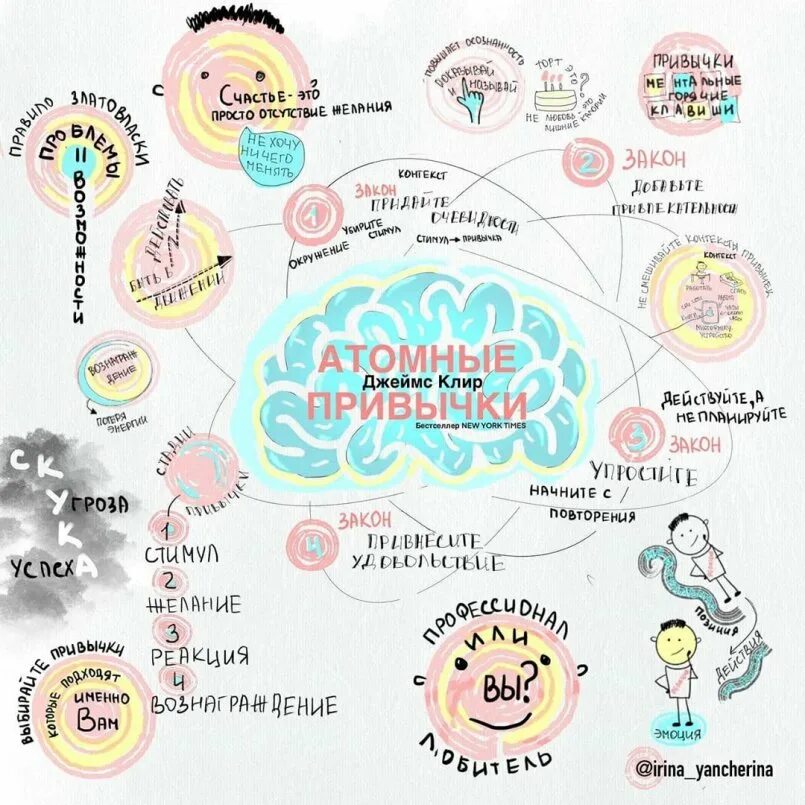 СЧАСТЬЕ - ЭТО
ПРОСТО ОТСУТСТВИЕ ЖЕЛАНИЯ
НЕ ХОЧУ
НИЧЕГО
МЕНЯТЬ
ПРАВИЛО ЗЛАТОВЛАСКИ
ПРОБЛЕМЫ
=
ВОЗМОЖНОСТИ
ПОВЫШАЕТ ОСОЗНАННОСТЬ
ПОКАЗЫВАЙ
И НАЗЫВАЙ
ТОРТ ЭТО
?
НЕ ЛЮБОВЬ
ЭТО
ЛИШНИЕ КАЛОРИИ
ПРИВЫЧКИ
МЕНТАЛЬНЫЕ
ГОРЯЧИЕ
КЛАВИШИ
ДЕЙСТВОВАТЬ
БЫТЬ В
ДВИЖЕНИИ
1 ЗАКОН
КОНТЕКСТ
ПРИДАЙТЕ
ОЧЕВИДНОСТИ
УБЕРИТЕ
СТИМУЛ
ОКРУЖЕНИЕ
СТИМУЛ → ПРИВЫЧКА
2 ЗАКОН
ДОБАВЬТЕ
ПРИВЛЕКАТЕЛЬНОСТИ
НЕ СМЕШИВАЙТЕ КОНТЕКСТЫ ПРИВЫЧЕК
КОНТЕКСТ
РАБОТАТЬ
СПАТЬ
УСТРОЙСТВО
АТОМНЫЕ
Джеймс Клир
ПРИВЫЧКИ
Бестселлер NEW YORK TIMES
ВОЗНАГРАЖДЕНИЕ
ПОТЕРЯ
ЭНЕРГИИ
ДЕЙСТВУЙТЕ, А
НЕ ПЛАНИРУЙТЕ
3 ЗАКОН
УПРОСТИТЕ
НАЧНИТЕ С
ПОВТОРЕНИЯ
4 ЗАКОН
ПРИВНЕСИТЕ
УДОВОЛЬСТВИЕ
СКУКА
УГРОЗА
УСПЕХА
СТАДИИ
ПРИВЫЧКИ
1
СТИМУЛ
2
ЖЕЛАНИЕ
3
РЕАКЦИЯ
4
ВОЗНАГРАЖДЕНИЕ
ВЫБИРАЙТЕ ПРИВЫЧКИ
КОТОРЫЕ ПОДХОДЯТ
ИМЕННО
ВАМ
ПРОФЕССИОНАЛ
ИЛИ
ВЫ?
ЛЮБИТЕЛЬ
ПОЗИЦИЯ
ДЕЙСТВИЯ
ЭМОЦИЯ
@irina_yancherina